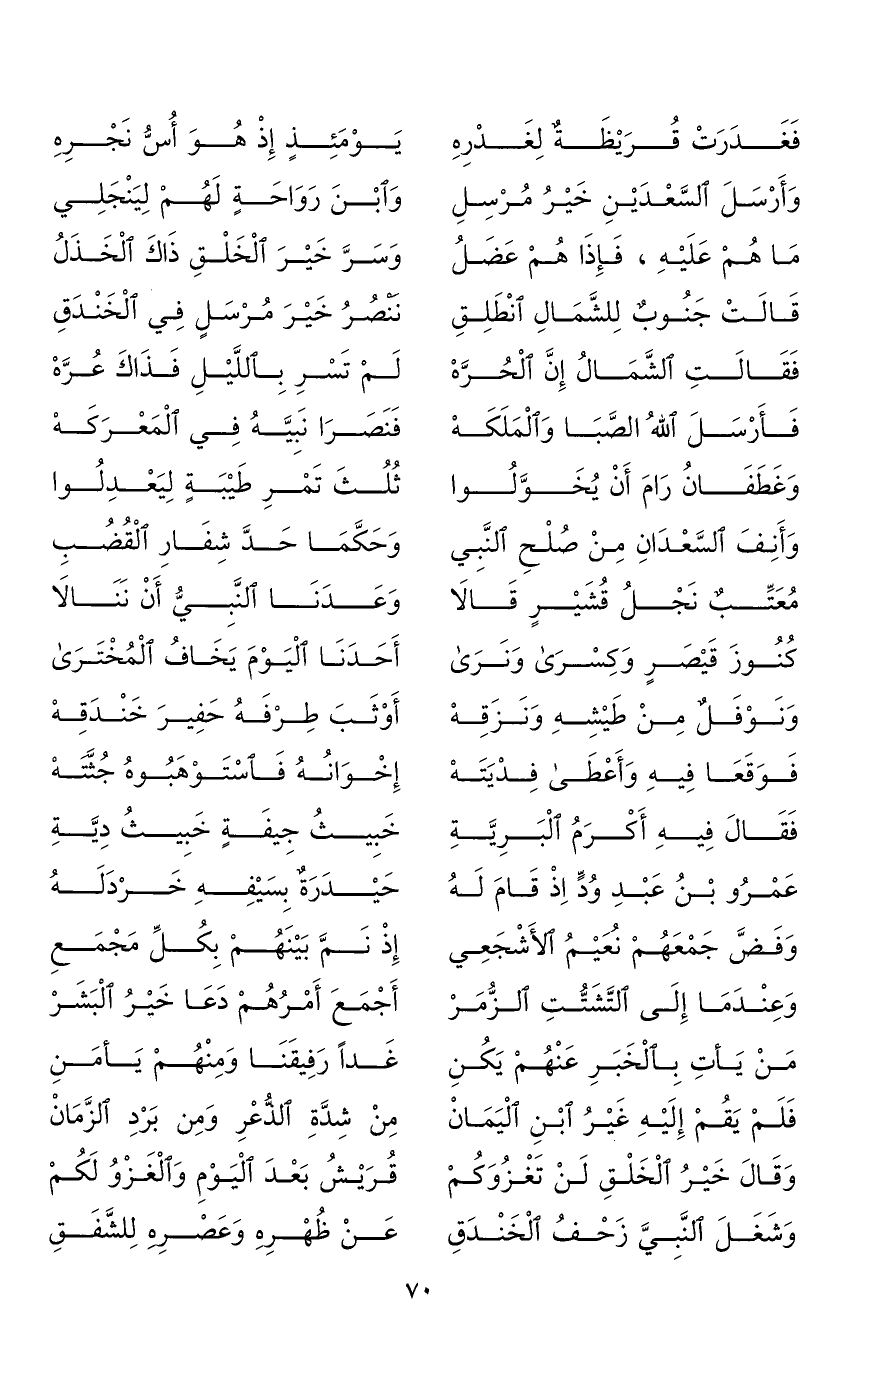 فَغَدَرَتْ قُرَيْظَةٌ لِغَدْرِهِ يَوْمَئِذٍ إِذْ هُوَ أُسُّ نَجْرِهِ
وَأَرْسَلَ ٱلسَّعْدَيْنِ خَيْرُ مُرْسِلِ وَٱبْنَ رَوَاحَةٍ لَهُمْ لِيَنْجَلِي
مَا هُمْ عَلَيْهِ ، فَإِذَا هُمْ عَضَلُ وَسَرَّ خَيْرَ ٱلْخَلْقِ ذَاكَ ٱلْخَذَلُ
قَالَتْ جَنُوبٌ لِلشَّمَالِ ٱنْطَلِقِ نَنْصُرُ خَيْرَ مُرْسَلٍ فِي ٱلْخَنْدَقِ
فَقَالَتِ ٱلشَّمَالُ إِنَّ ٱلْحُرَّهْ لَمْ تَسْرِ بِٱللَّيْلِ فَذَاكَ عُرَّهْ
فَأَرْسَلَ ٱللهُ الصَّبَا وَٱلْمَلَكَهْ فَنَصَرَا نَبِيَّهُ فِي ٱلْمَعْرَكَهْ
وَغَطَفَانُ رَامَ أَنْ يُخَوَّلُوا ثُلُثَ تَمْرِ طَيْبَةٍ لِيَعْدِلُوا
وَأَنِفَ ٱلسَّعْدَانِ مِنْ صُلْحِ ٱلنَّبِي وَحَكَّمَا حَدَّ شِفَارِ ٱلْقُضُبِ
مُعَتِّبٌ نَجْلُ قُشَيْرٍ قَالَا وَعَدَنَا ٱلنَّبِيُّ أَنْ نَنَالَا
كُنُوزَ قَيْصَرٍ وَكِسْرَىٰ وَنَرَىٰ أَحَدَنَا ٱلْيَوْمَ يَخَافُ ٱلْمُخْتَرَىٰ
وَنَوْفَلٌ مِنْ طَيْشِهِ وَنَزَقِهْ أَوْثَبَ طِرْفَهُ حَفِيرَ خَنْدَقِهْ
فَوَقَعَا فِيهِ وَأَعْطَىٰ فِدْيَتَهْ إِخْوَانُهُ فَٱسْتَوْهَبُوهُ جُثَّتَهْ
فَقَالَ فِيهِ أَكْرَمُ ٱلْبَرِيَّةِ خَبِيثُ جِيفَةٍ خَبِيثُ دِيَّةِ
عَمْرُو بْنُ عَبْدِ وُدٍّ إِذْ قَامَ لَهُ حَيْدَرَةٌ بِسَيْفِهِ خَرْدَلَهُ
وَفَضَّ جَمْعَهُمْ نُعَيْمُ ٱلأَشْجَعِي إِذْ نَمَّ بَيْنَهُمْ بِكُلِّ مَجْمَعِ
وَعِنْدَمَا إِلَى ٱلتَّشَتُّتِ ٱلزُّمَرْ أَجْمَعَ أَمْرُهُمْ دَعَا خَيْرُ ٱلْبَشَرْ
مَنْ يَأتِ بِٱلْخَبَرِ عَنْهُمْ يَكُنِ غَداً رَفِيقَنَا وَمِنْهُمْ يَأمَنِ
فَلَمْ يَقُمْ إِلَيْهِ غَيْرُ ٱبْنِ ٱلْيَمَانْ مِنْ شِدَّةِ ٱلذُّعْرِ وَمِن بَرْدِ ٱلزَّمَانْ
وَقَالَ خَيْرُ ٱلْخَلْقِ لَنْ تَغْزُوَكُمْ قُرَيْشُ بَعْدَ ٱلْيَوْمِ وَٱلْغَزْوُ لَكُمْ
وَشَغَلَ ٱلنَّبِيَّ زَحْفُ ٱلْخَنْدَقِ عَنْ ظُهْرِهِ وَعَصْرِهِ لِلشَّفَقِ
٧٠